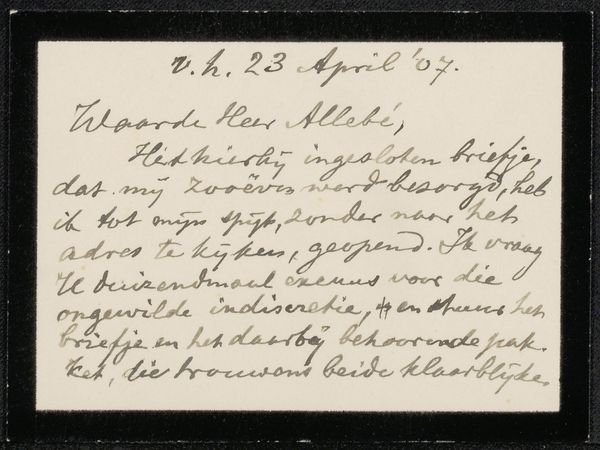 v. h. 23 April '07.
Waarde Heer Allebé,
Het hierbij ingesloten briefje,
dat mij zooëven werd bezorgd, heb
ik tot mijn spijt, zonder naar het
adres te kijken, geopend. Ik vraag
U duizendmaal excuus voor die
ongewilde indiscretie, en stuur het
briefje en het daarbij behoorende pak-
ket, die trouwens beide klaarblijke-